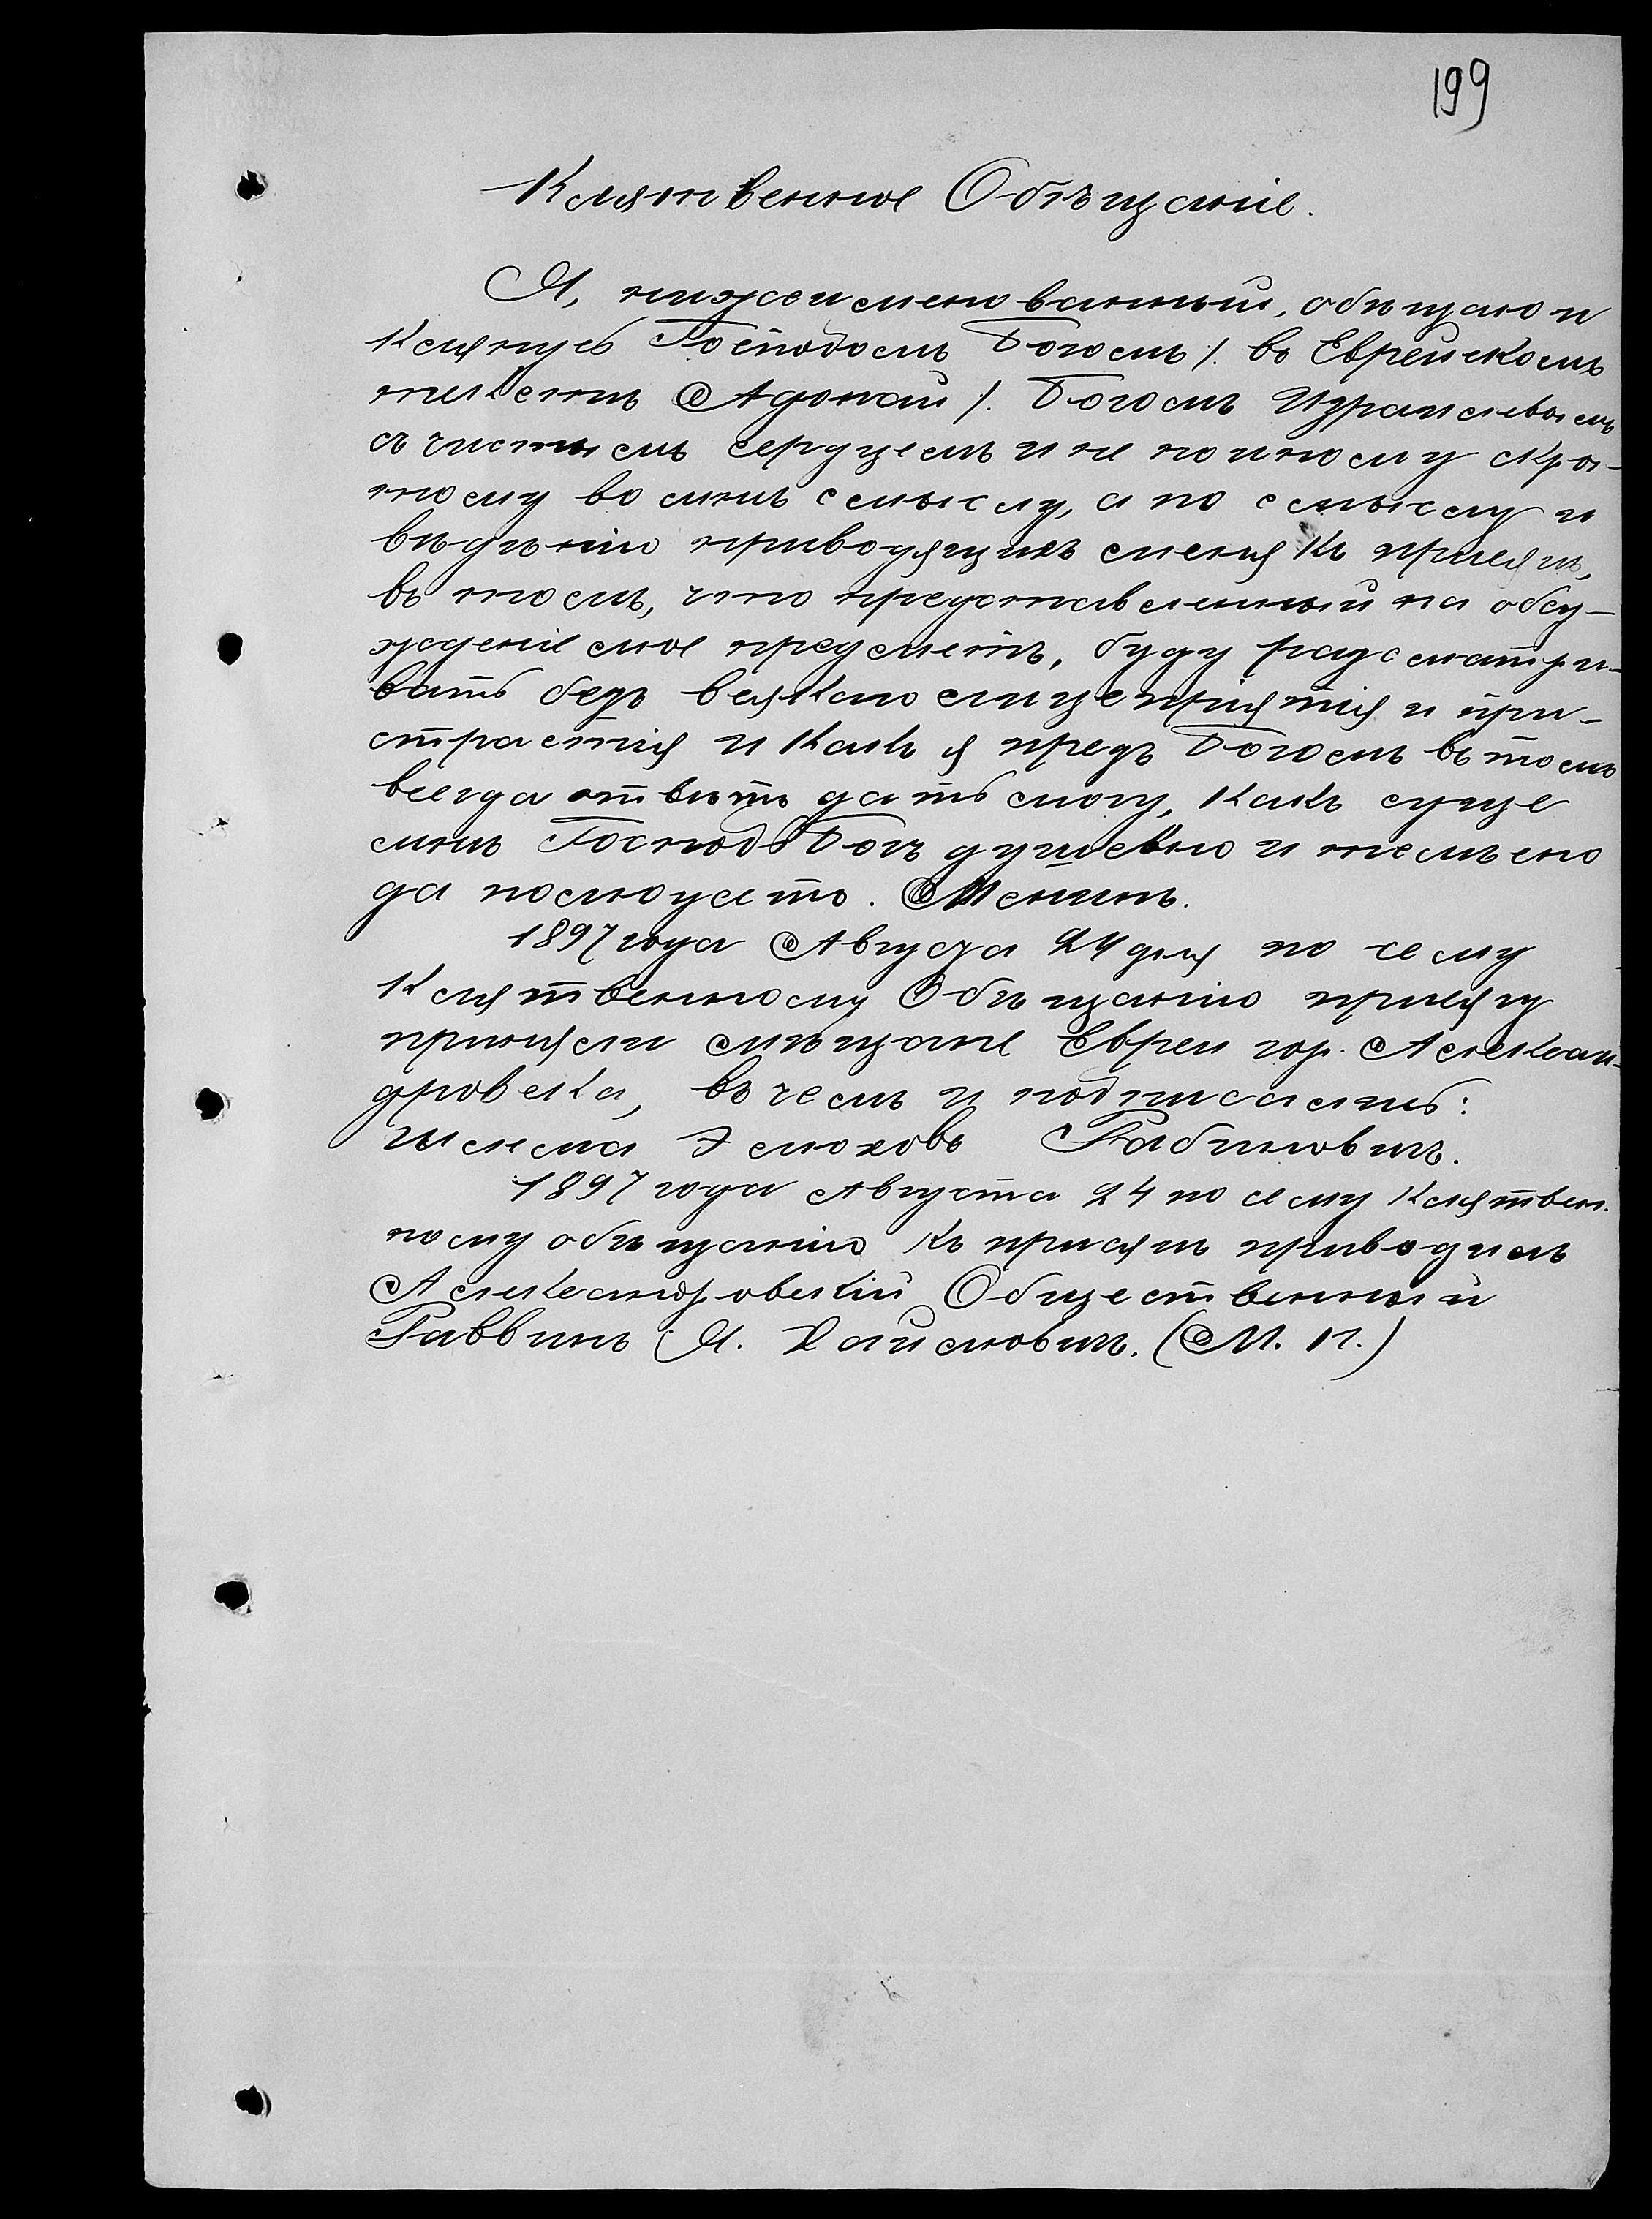 199
Клятвенное Обѣщаніе.
Я, нижеименованный, обѣщаю и
клянусь Господомъ Богомъ /. въ Еврейскомъ
текстѣ Адонай /. Богомъ Израилевымъ
съ чистымъ сердцемъ и не по иному скры-
тому во мнѣ смыслу, а по смыслу и
вѣдѣнію приводящихъ меня къ присягѣ,
въ томъ, что представленный на обсу-
жденіе мое предметъ, буду разсматри-
вать безъ всякаго лицепріятія и при-
страстія и какъ я предъ Богомъ въ томъ
всегда отвѣтъ дать могу, какъ суще
мнѣ Господь Богъ душевно и телѣсно
да поможетъ. Аминь.
1897 года Августа 24 дня по сему
Клятвенному Обѣщанію присягу
приняли мѣщане Евреи гор. Алексан-
дровска, въ чемъ и подписались:
Шлема Элюховъ Рабиновичъ.
1897 года Августа 24 по сему Клятвен.
ному обѣщанію къ присягѣ приводилъ
Александровскій Общественный
Раввинъ Я. Хаймовичъ. (М. П.)